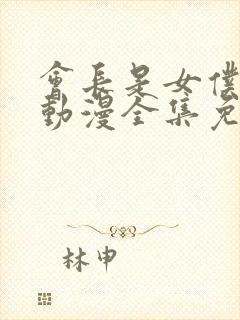 會長是女僕
動漫全集免
林申